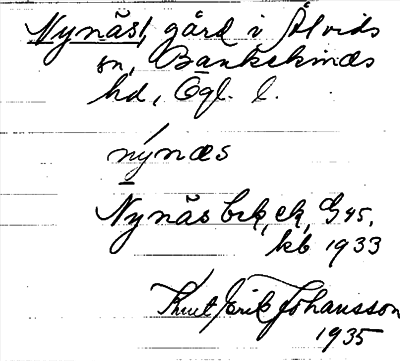 Nynäs, gård i Åtvids
sn, Bankekinds
hd, Ögl. l.
nýnæs
Nynäs brk, ek, G 95,
kb 1933
Knut Erik Johansson
1935